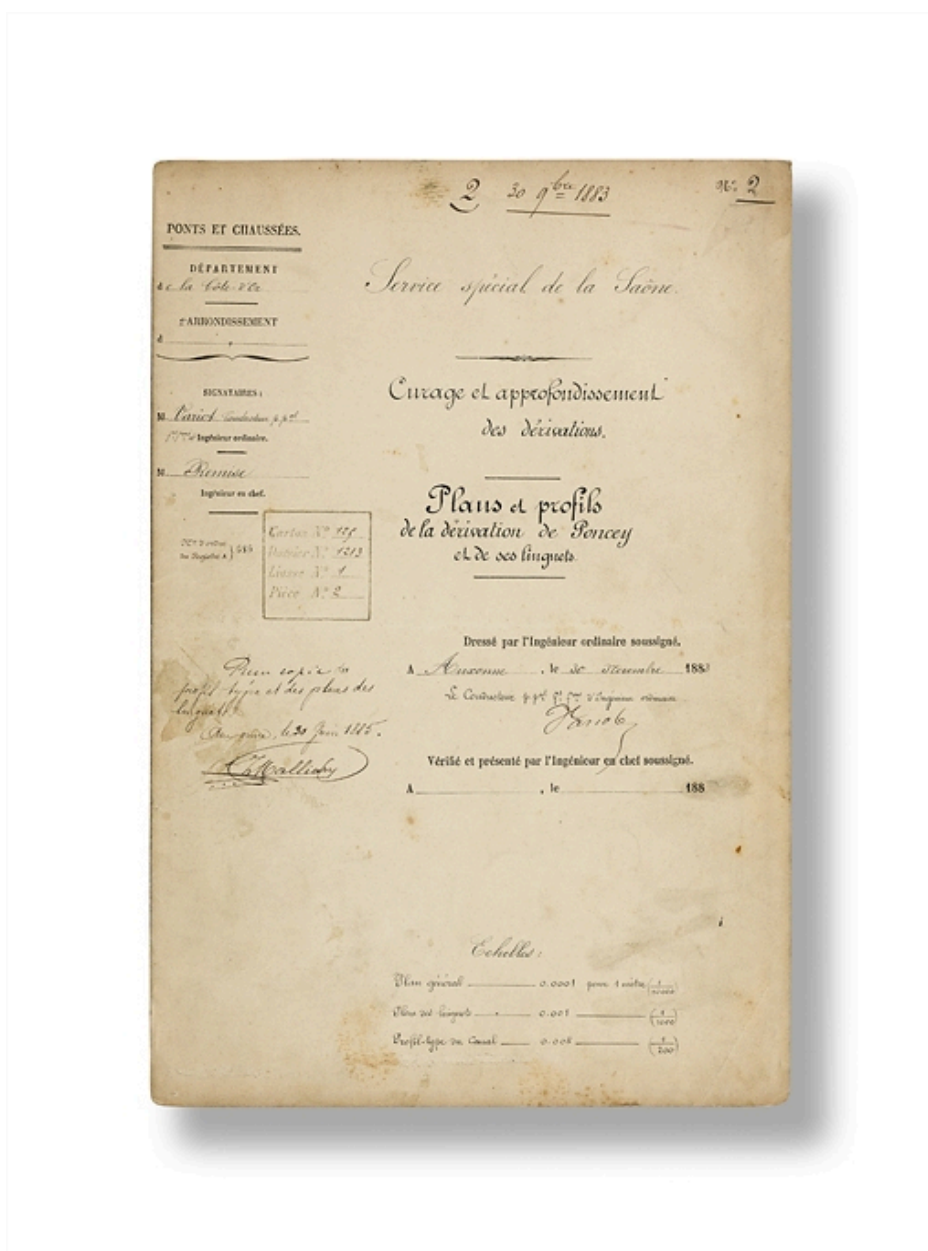 2 30 9bre 1883
No 2
PONTS ET CHAUSSÉES.
DÉPARTEMENT
de la Côte-d'Or
ARRONDISSEMENT
d
SIGNATAIRES :
M Variot Conducteur p.pal
Ingénieur ordinaire.
M Remise
Ingénieur en chef.
Carton No
Dossier No 1213
Liasse No 1
Pièce No 2
profil type et des plans des
linguets.
le 30 Juin 1885.
Service spécial de la Saône.
Curage et approfondissement
des dérivations.
Plans et profils
de la dérivation de Poncey
et de ses linguets.
Dressé par l'Ingénieur ordinaire soussigné.
A Auxonne, le 30 Novembre 1883
Le Conducteur p.pal d'Ingénieur ordinaire
Variot
Vérifié et présenté par l'Ingénieur en chef soussigné.
A , le 188
Echelles :
Plan général 0.0001 pour 1 mètre (1/10000)
Plans des linguets 0.001 (1/1000)
Profil-type du Canal 0.005 (1/200)